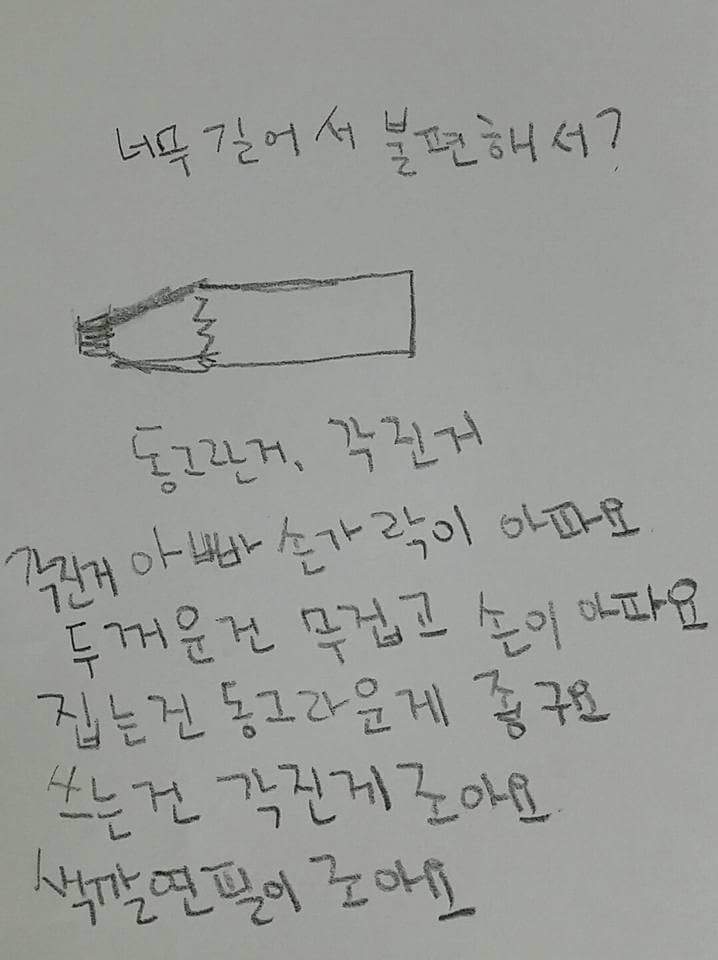 너무 길어서 불편해서?
동그란거, 각진거
각진게 아빠 손가락이 아파요
두꺼운건 무겁고 손이 아파요
집는건 동그라운게 좋구요
쓰는건 각진게 조아요
색깔연필이 조아요